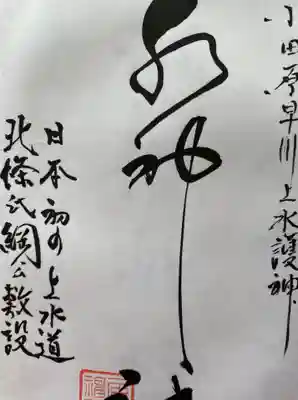 小田原早川上水護神
水神
日本初の上水道
北條氏綱公敷設